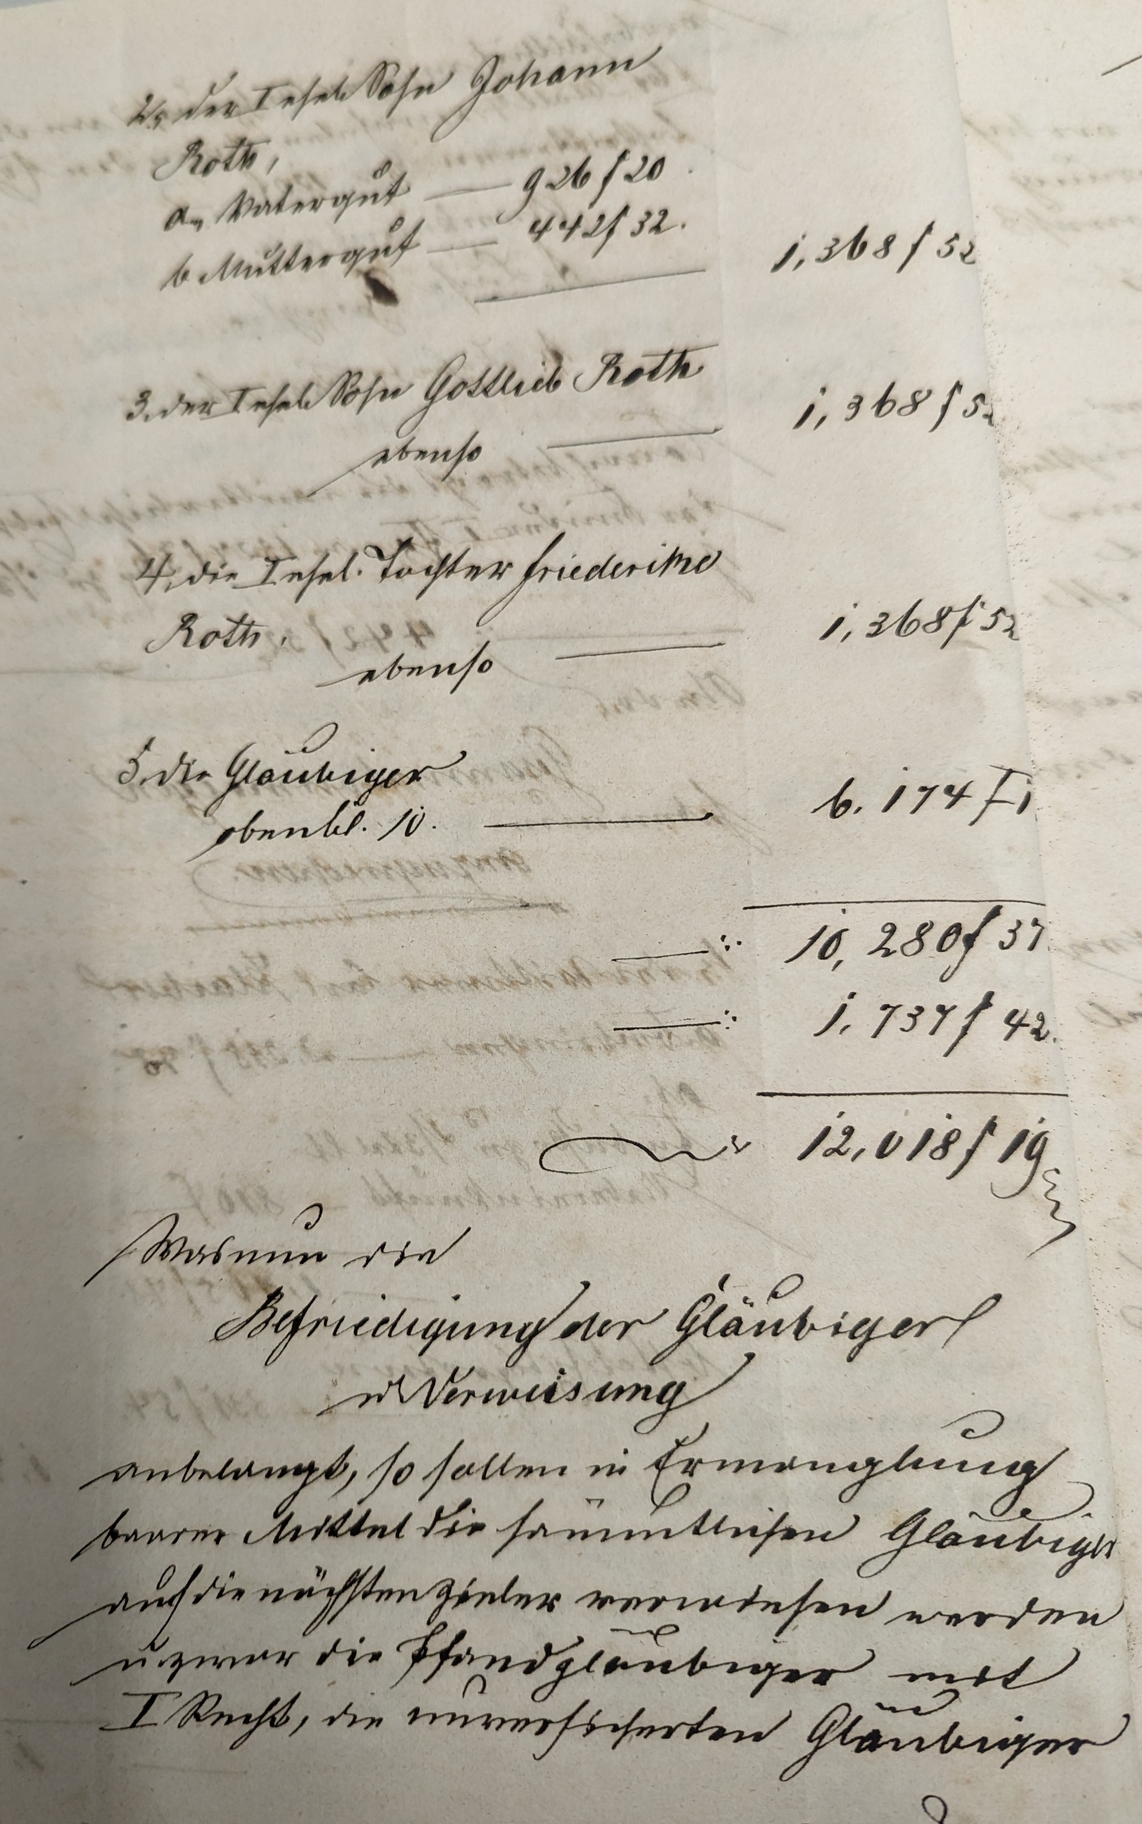 2, der Insel. Sohn Johann
Roth,
a, Vatergut — 926 f 20.
b Muttergut — 442 f 32.
1,368 f 52
3, der Insel. Sohn Gottlieb Roth
ebenso — 1,368 f 52
4, die Insel. Tochter Friederike
Roth,
ebenso — 1,368 f 52
5. die Gläubiger
oben bl. 10. — 6.174 f 1
— : 10,280 f 37
— : 1,737 f 42.
12,018 f 19
Was nun die
Befriedigung der Gläubiger
u Verweisung
anbelangt, so sollen in Ermanglung
baarer Mittel die sämmtlichen Gläubiger
auf die nächsten Zieler verwiesen werden
u. zwar die Pfandgläubiger mit
I Recht, die unversicherten Gläubiger